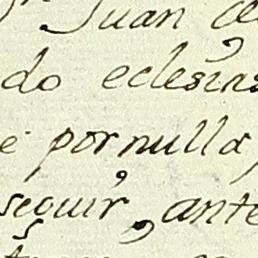 Juan
do eclesias
e por nulla,
seguir, ante